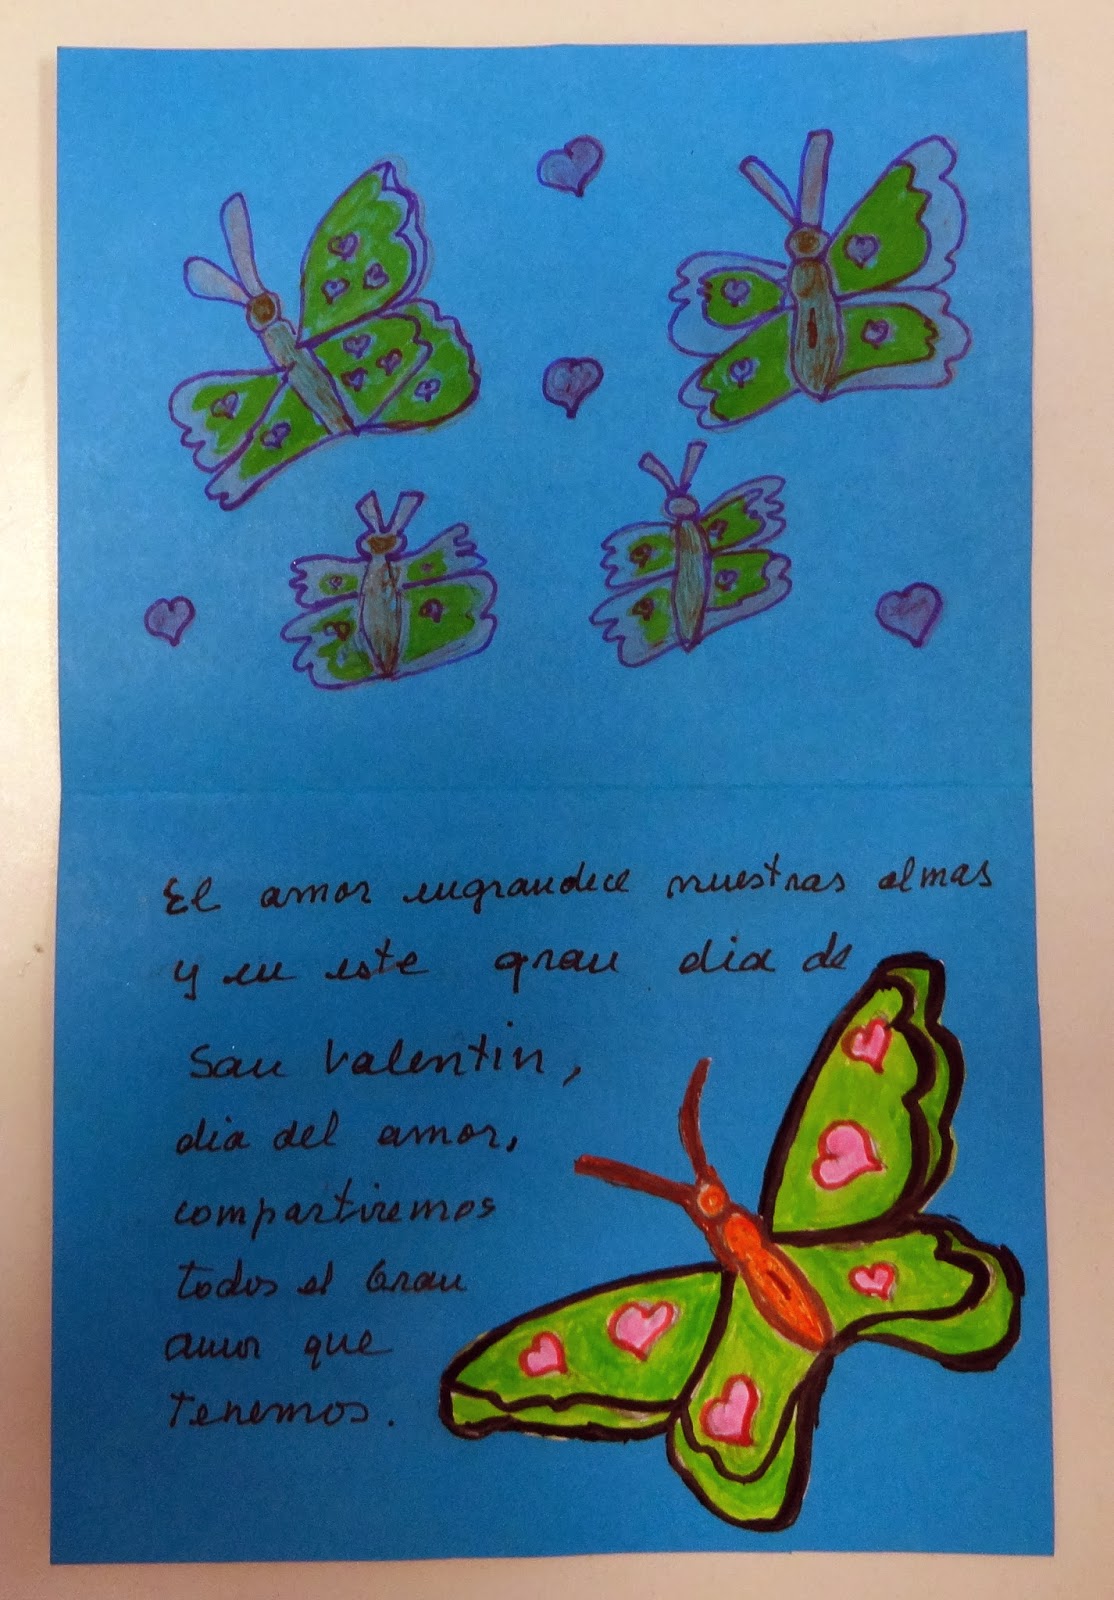 El amor engrandece nuestras almas
y en este gran dia de
San Valentin,
dia del amor,
compartiremos
todos el Gran
amor que
tenemos.